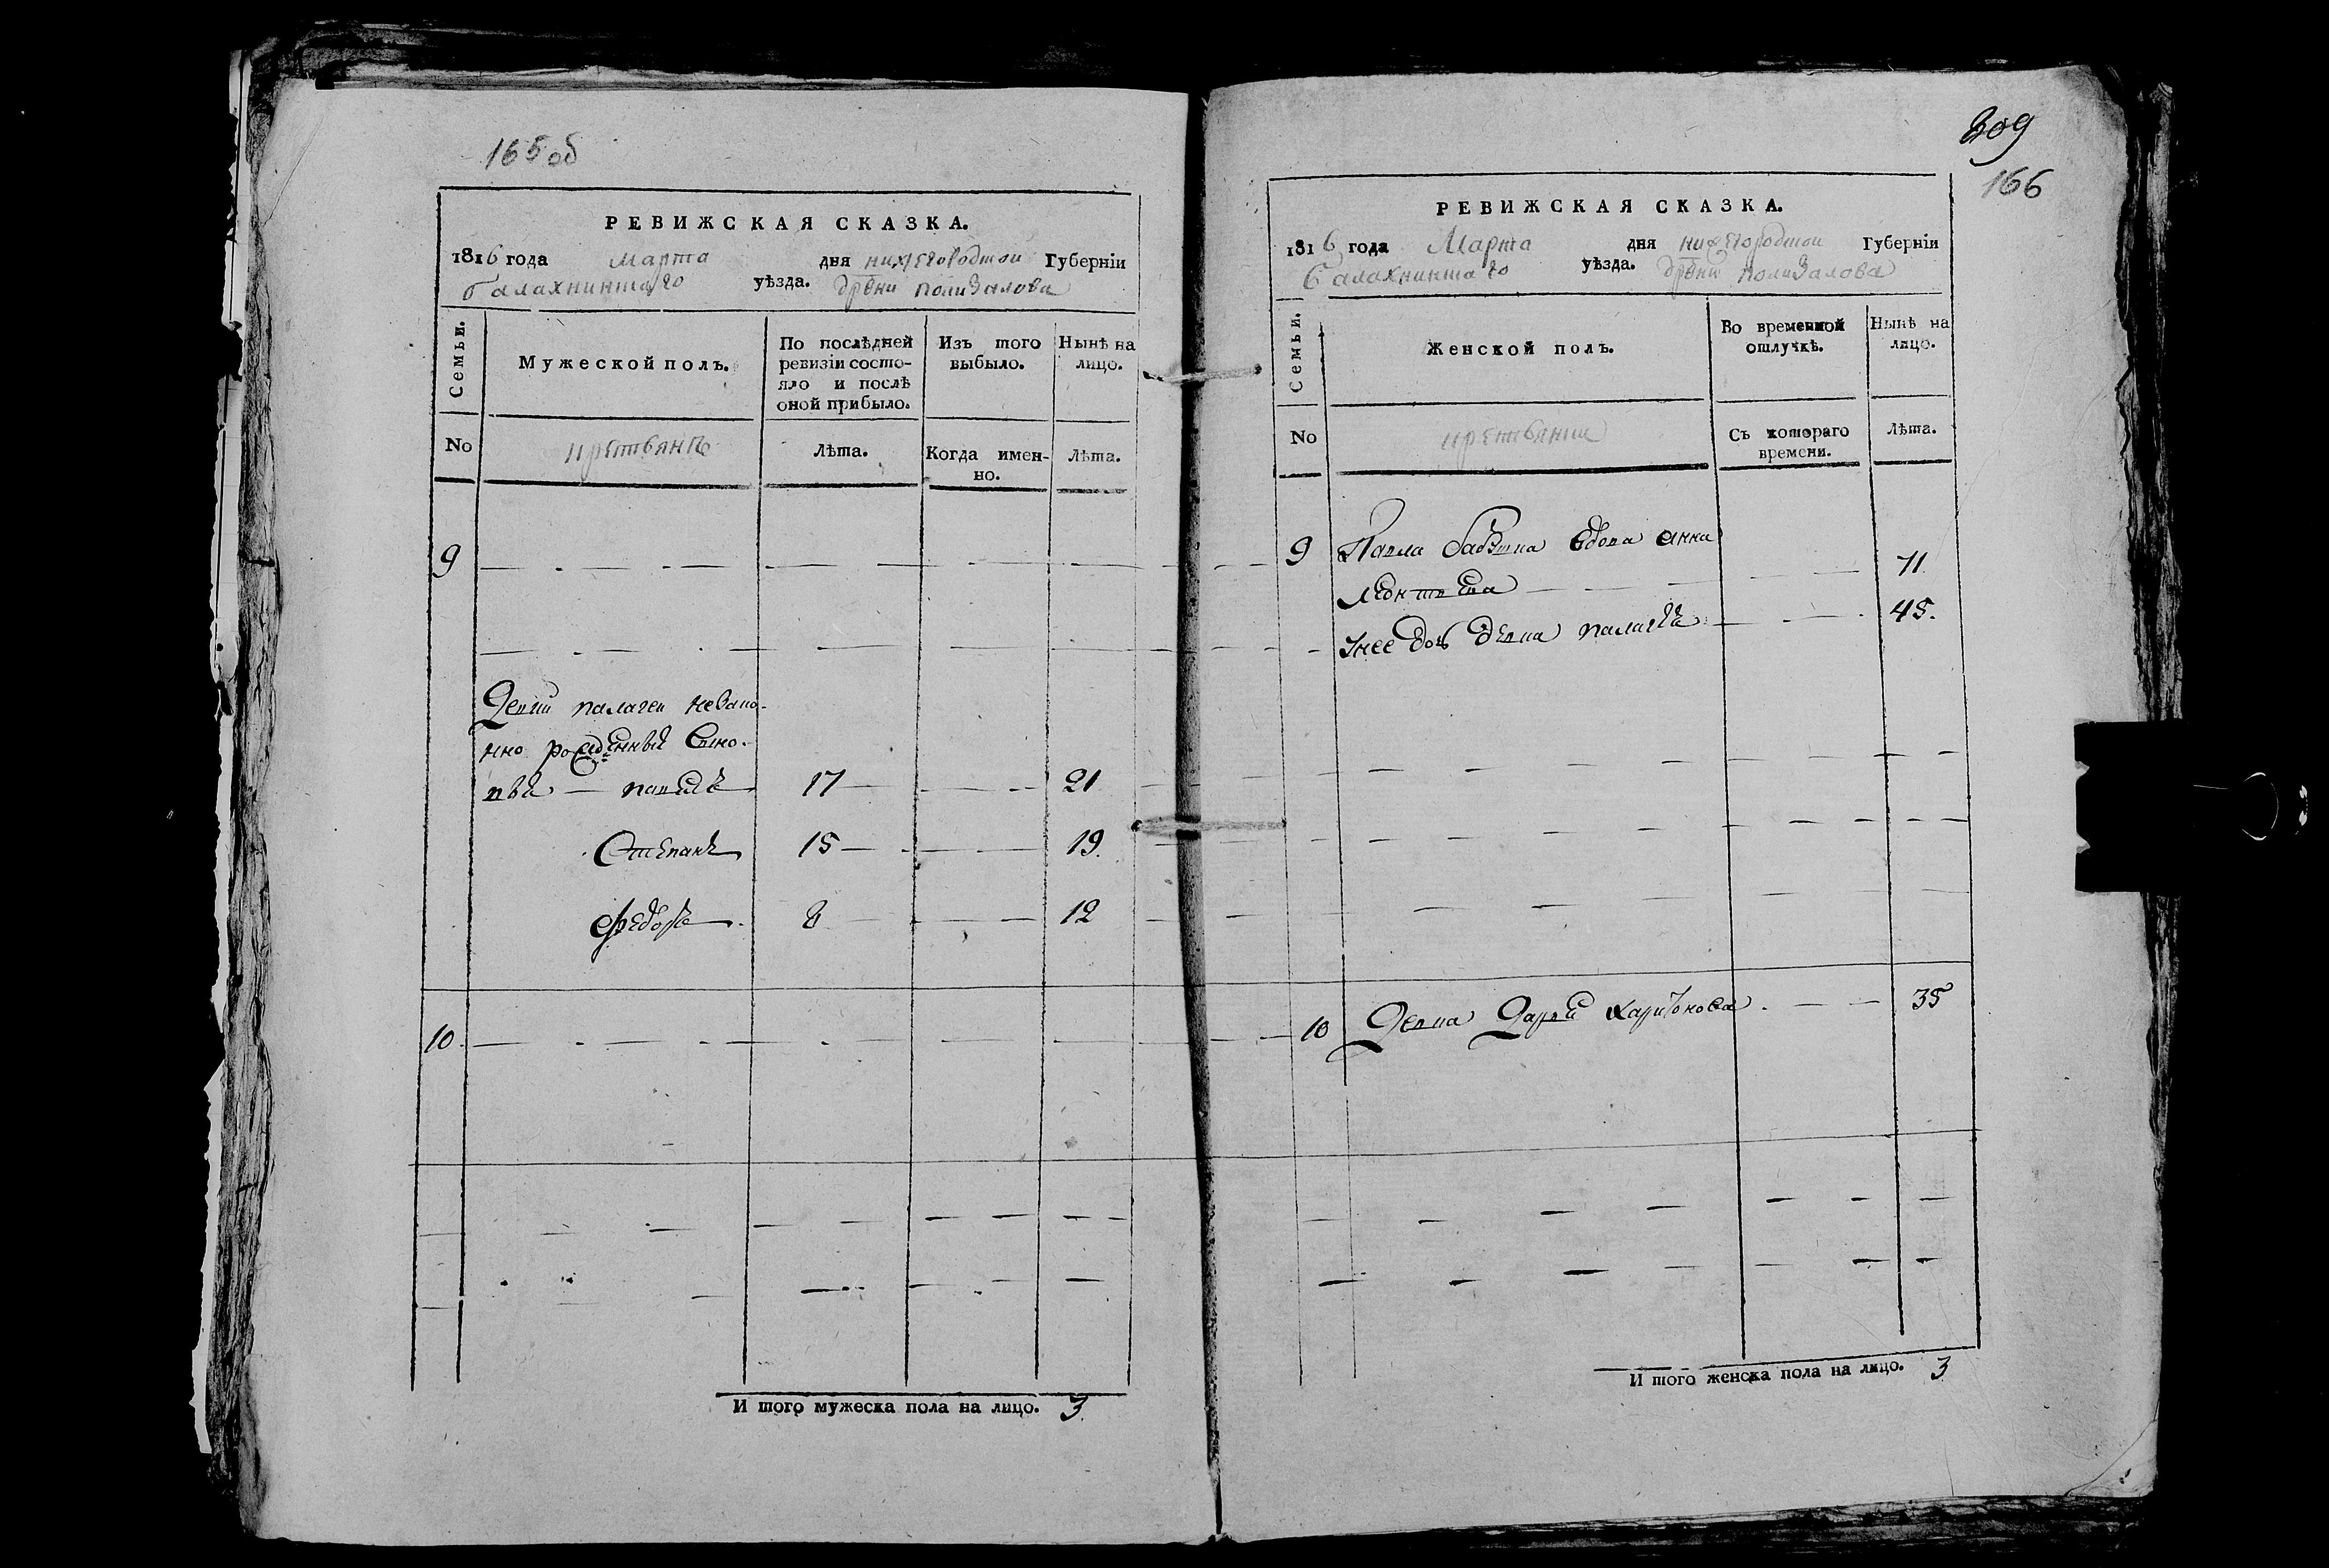 165 об
РЕВИЖСКАЯ СКАЗКА.
1816 года марта дня нижегородской Губерніи
балахнинскаго уѣзда. дрѣни
Семьи.
Мужеской полъ.
По послѣдней ревизіи состояло и послѣ оной прибыло.
Изъ того выбыло.
Нынѣ на лицо.
No
крестьянъ
Лѣта.
Когда именно.
Лѣта.
9
Девки палагеи незако-
нно рожденныя сыно-
вья — павелъ 17 21
Степанъ 15 19.
Федоръ 8 12
10
И того мужеска пола на лицо. 3.
309
166
РЕВИЖСКАЯ СКАЗКА.
1816 года Марта дня нижегородской Губерніи
балахнинскаго уѣзда.
Семьи.
Женской полъ.
Во временной отлучкѣ.
Нынѣ на лицо.
No
Съ котораго времени.
Лѣта.
9 Павла вдова анна
леонтьева 71
унее дочь девка палагея 45.
10 Девка Дарья харитонова 35
И того женска пола на лицо. 3